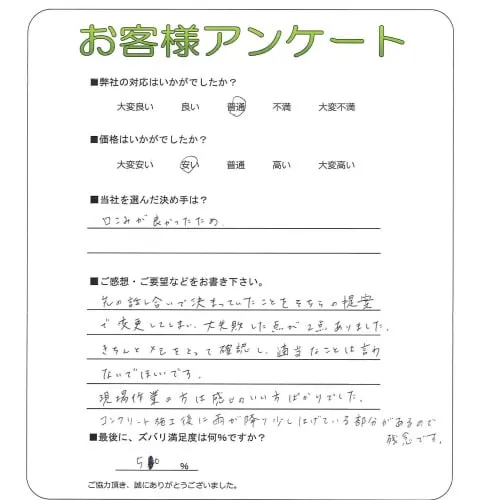 お客様アンケート
■弊社の対応はいかがでしたか？
大変良い 良い 普通 不満 大変不満
■価格はいかがでしたか？
大変安い 安い 普通 高い 大変高い
■当社を選んだ決め手は？
口こみが良かったため
■ご感想・ご要望などをお書き下さい。
先の話し合いで決まっていたことをそちらの提案
で変更してしまい、大失敗した点が2点ありました。
きちんとメモをとって確認し、適当なことは言わ
ないでほしいです。
現場作業の方は感じのいい方ばかりでした。
コンクリート施工後に雨が降り少しはげている部分があるので
残念です。
■最後に、ズバリ満足度は何％ですか？
50 ％
ご協力頂き、誠にありがとうございました。